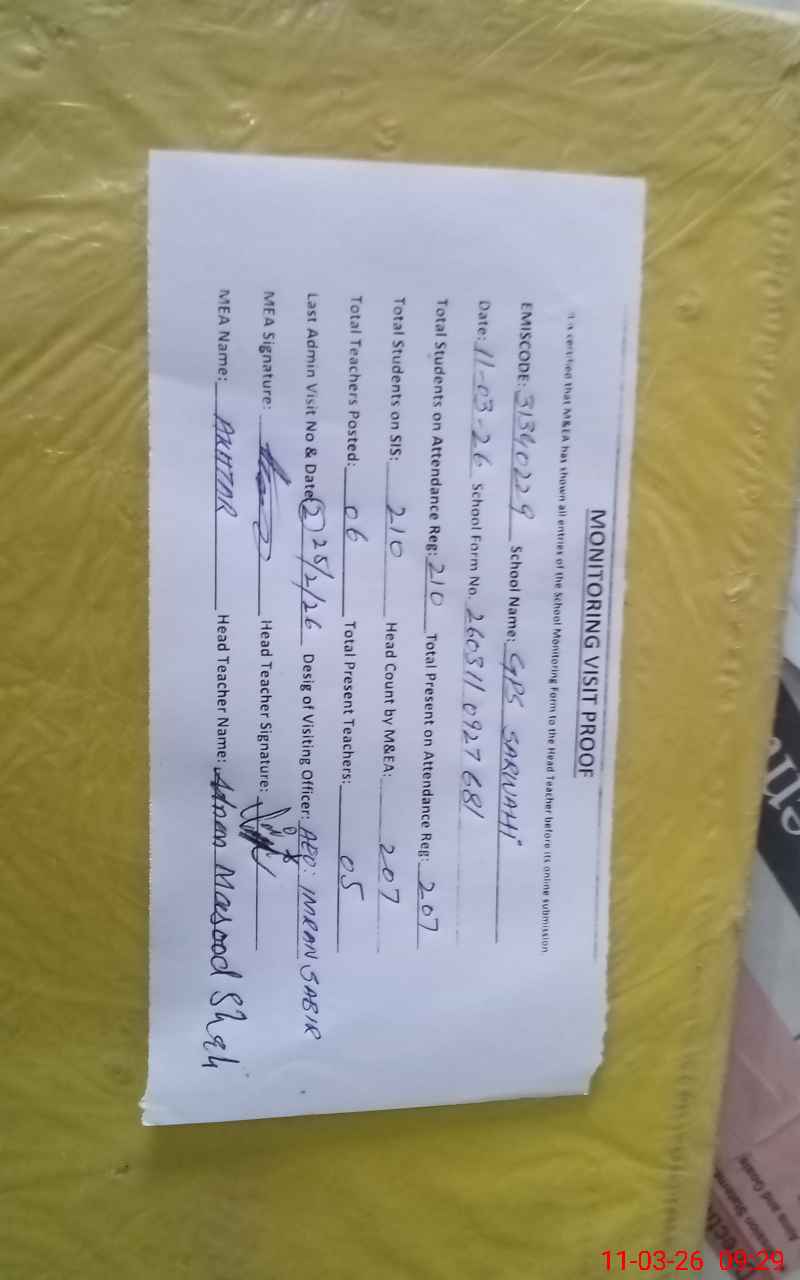 MONITORING VISIT PROOF
It is certified that M&EA has shown all entries of the School Monitoring Form to the Head Teacher before its online submission.
EMISCODE: 31340229 School Name: GPS SARWAHI
Date: 11-03-26 School Form No. 260311 0927 681
Total Students on Attendance Reg: 210 Total Present on Attendance Reg: 207
Total Students on SIS: 210 Head Count by M&EA: 207
Total Teachers Posted: 06 Total Present Teachers: 05
Last Admin Visit No & Date (2) 25/2/26 Desig of Visiting Officer: AEO: IMRAN SABIR
MEA Signature: Head Teacher Signature:
MEA Name: AKHTAR Head Teacher Name: Adnan Masood Shah
Area and Grade
11-03-26 09:29